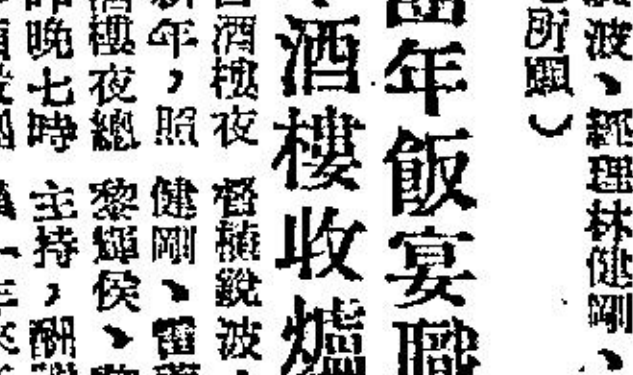 波、經理林健剛、
所
團年飯宴職
酒樓收爐
酒樓夜
新年，照
酒樓夜總
昨晚七時
督 銳波、
健剛、雷
黎輝侯、
主持，酬
一年來